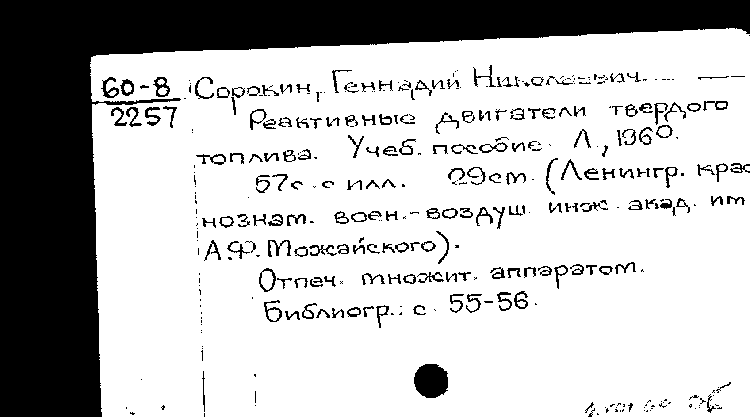 60-8
2257
Сорокин, Геннадий Николаевич.
Реактивные двигатели твердого
топлива. Учеб. пособие. Л., 1960.
57с. с илл. 29см. (Ленингр. крас
нознам. воен.-воздуш. инж. акад. им
А.Ф. Можайского).
Отпеч. множит. аппаратом.
Библиогр.: с. 55-56.